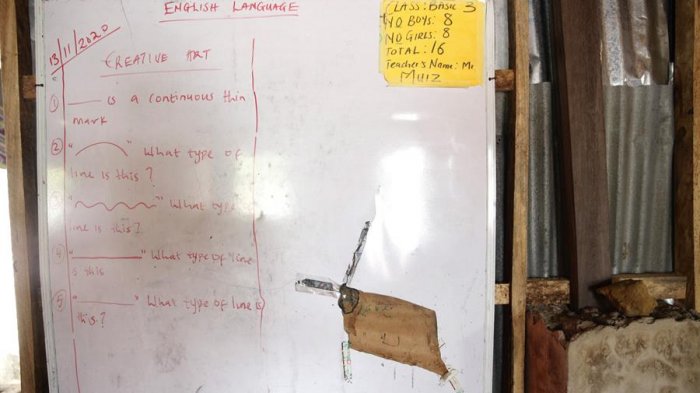 ENGLISH LANGUAGE
13/11/2020
CREATIVE ART
① ___ is a continuous thin
mark
② " " What type of
line is this?
③ " " What type
line is this?
④ " " What type of line
is this
⑤ " " What type of line is
this?
CLASS: BASIC 3
NO BOYS: 8
NO GIRLS: 8
TOTAL: 16
Teacher's Name: Mr
MUIZ